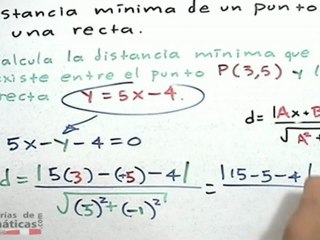 stancia mínima de un punto
una recta.
alcula la distancia mínima que
xiste entre el punto P(3,5) y l
recta y = 5x-4.
d= |Ax+B
√A²+
5x-y-4=0
d= |5(3)-(5)-4| = |15-5-4|
√(5)²+(-1)²
rías de
máticas